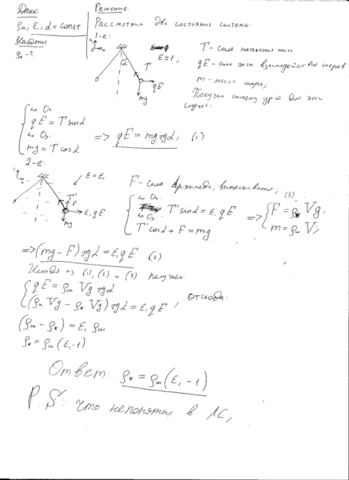 Дано:
ρш, ε₁, α = const
Найти
ρж - ?
Решение:
Рассмотрим два состояния системы:
1-е:
ε = 1,
T - сила натяжения нити
qE - сила эл. взаимодействия шаров
m - масса шара,
Получим систему ур-й для этих
случаев:
T
qE
mg
{ qE = T sinα
mg = T cosα
=> qE = mg tgα, (1)
2-е:
ε = ε₁
T'
F
ε₁qE
mg
F - сила Архимеда, выталкивать,
{ T' sinα = ε₁ qE
T' cosα + F = mg
=> { F = ρж Vg, (3)
m = ρш V;
=> (mg - F) tgα = ε₁ qE (2)
Исходя из (1), (2) и (3) получим:
{ qE = ρш Vg tgα
(ρш Vg - ρж Vg) tgα = ε₁ qE
, отсюда:
(ρш - ρж) = ε₁ ρш
ρж = ρш (ε₁ - 1)
Ответ: ρж = ρш (ε₁ - 1)
P.S: что непонятно в ЛС,